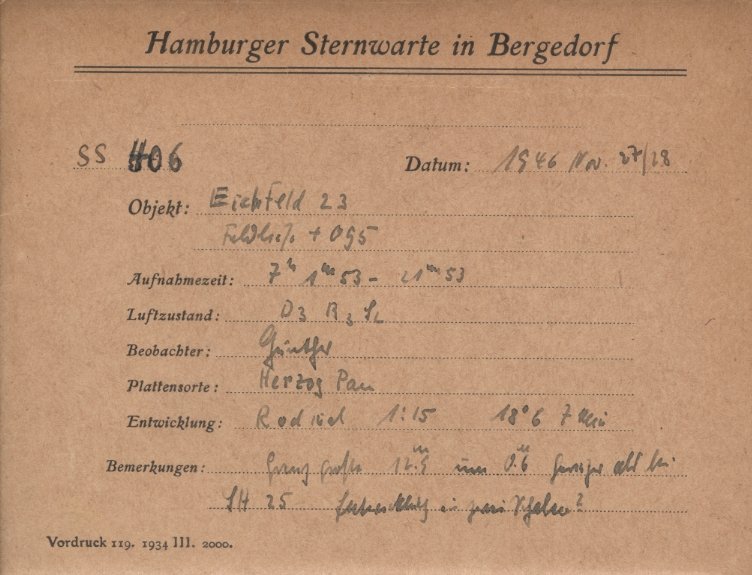 Hamburger Sternwarte in Bergedorf
SS 406 Datum: 1946 Nov. 27/28
Objekt: Eichfeld 23
+ 095
Aufnahmezeit: 7h 1m 53 - 21m 53
Luftzustand: D3 R3 S2
Beobachter: Günther
Plattensorte: Herzog Pan
Entwicklung: Rodinal 1:15 18°6 7 Min
Bemerkungen: Grenzgröße 12.m5 um 0.m6 geringer als bei
SH 25 Entwicklung in zwei Schalen?
Vordruck 119. 1934 III. 2000.